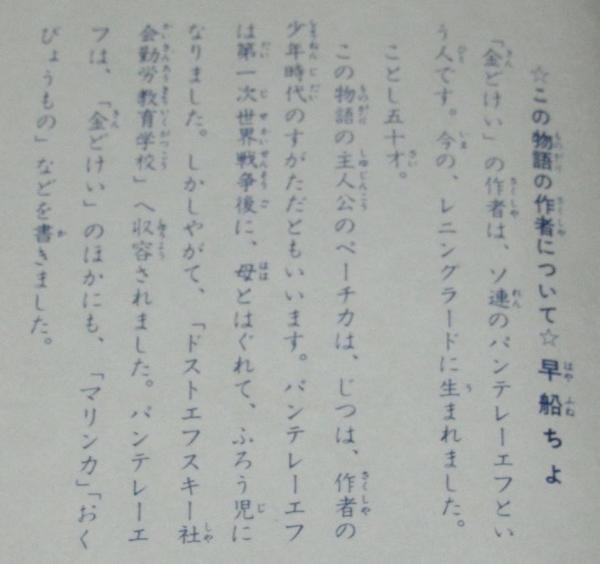 ☆この物語の作者について☆ 早船ちよ
「金どけい」の作者は、ソ連のパンテレーエフとい
う人です。今の、レニングラードに生まれました。
ことし五十才。
この物語の主人公のペーチカは、じつは、作者の
少年時代のすがただともいいます。パンテレーエフ
は第一次世界戦争後に、母とはぐれて、ふろう児に
なりました。しかしやがて、「ドストエフスキー社
会勤労教育学校」へ収容されました。パンテレーエ
フは、「金どけい」のほかにも、「マリンカ」「おく
びょうもの」などを書きました。